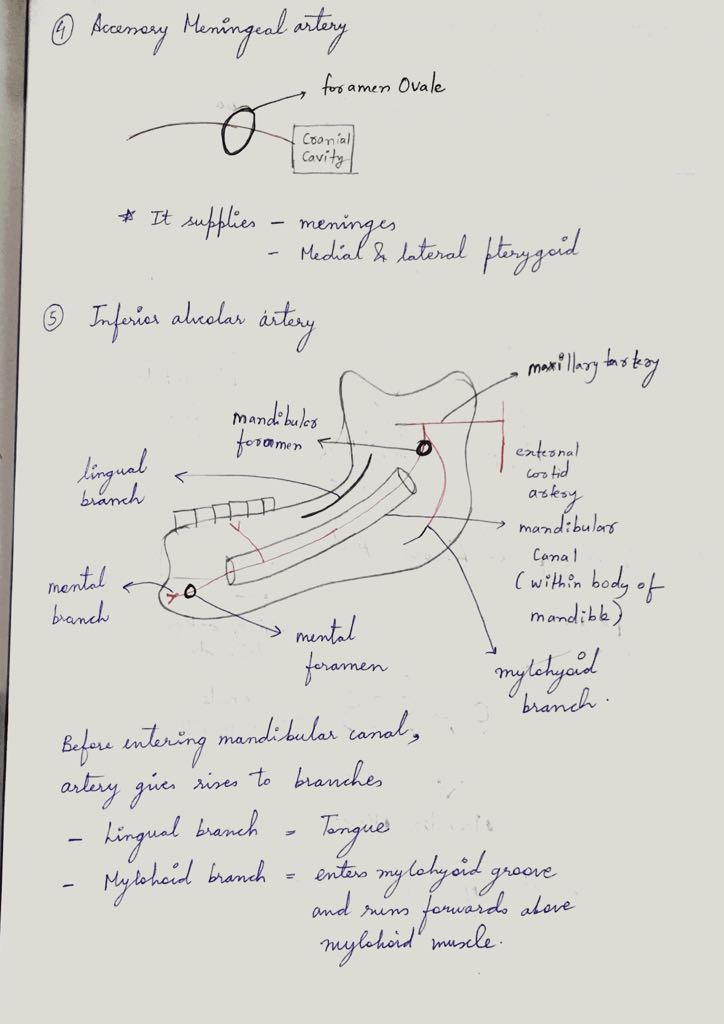 ④ Accessory Meningeal artery
foramen Ovale
Cranial
Cavity
* It supplies - meninges
- Medial & lateral pterygoid
⑤ Inferior alveolar artery
maxillary artery
mandibular
foramen
lingual
branch
external
cortid
artery
mandibular
canal
(within body of
mandible)
mental
branch
mental
foramen
mylohyoid
branch.
Before entering mandibular canal,
artery gives rises to branches
- Lingual branch = Tongue
- Mylohoid branch = enters mylohyoid groove
and runs forwards above
mylohoid muscle.